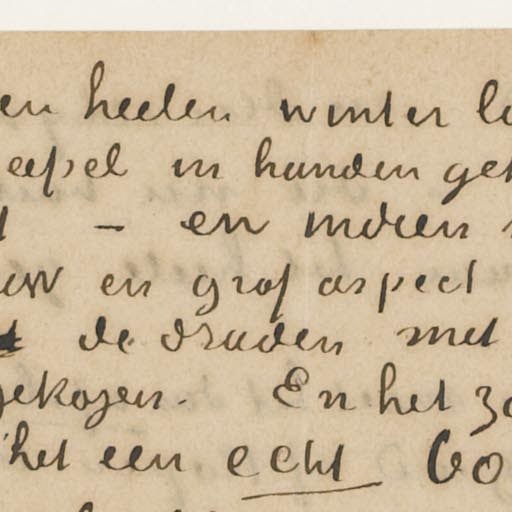 en heelen winter la
eefsel in handen geh
– en indien
uw en grof aspect
de draden met
gekozen. En het zo
het een echt bo